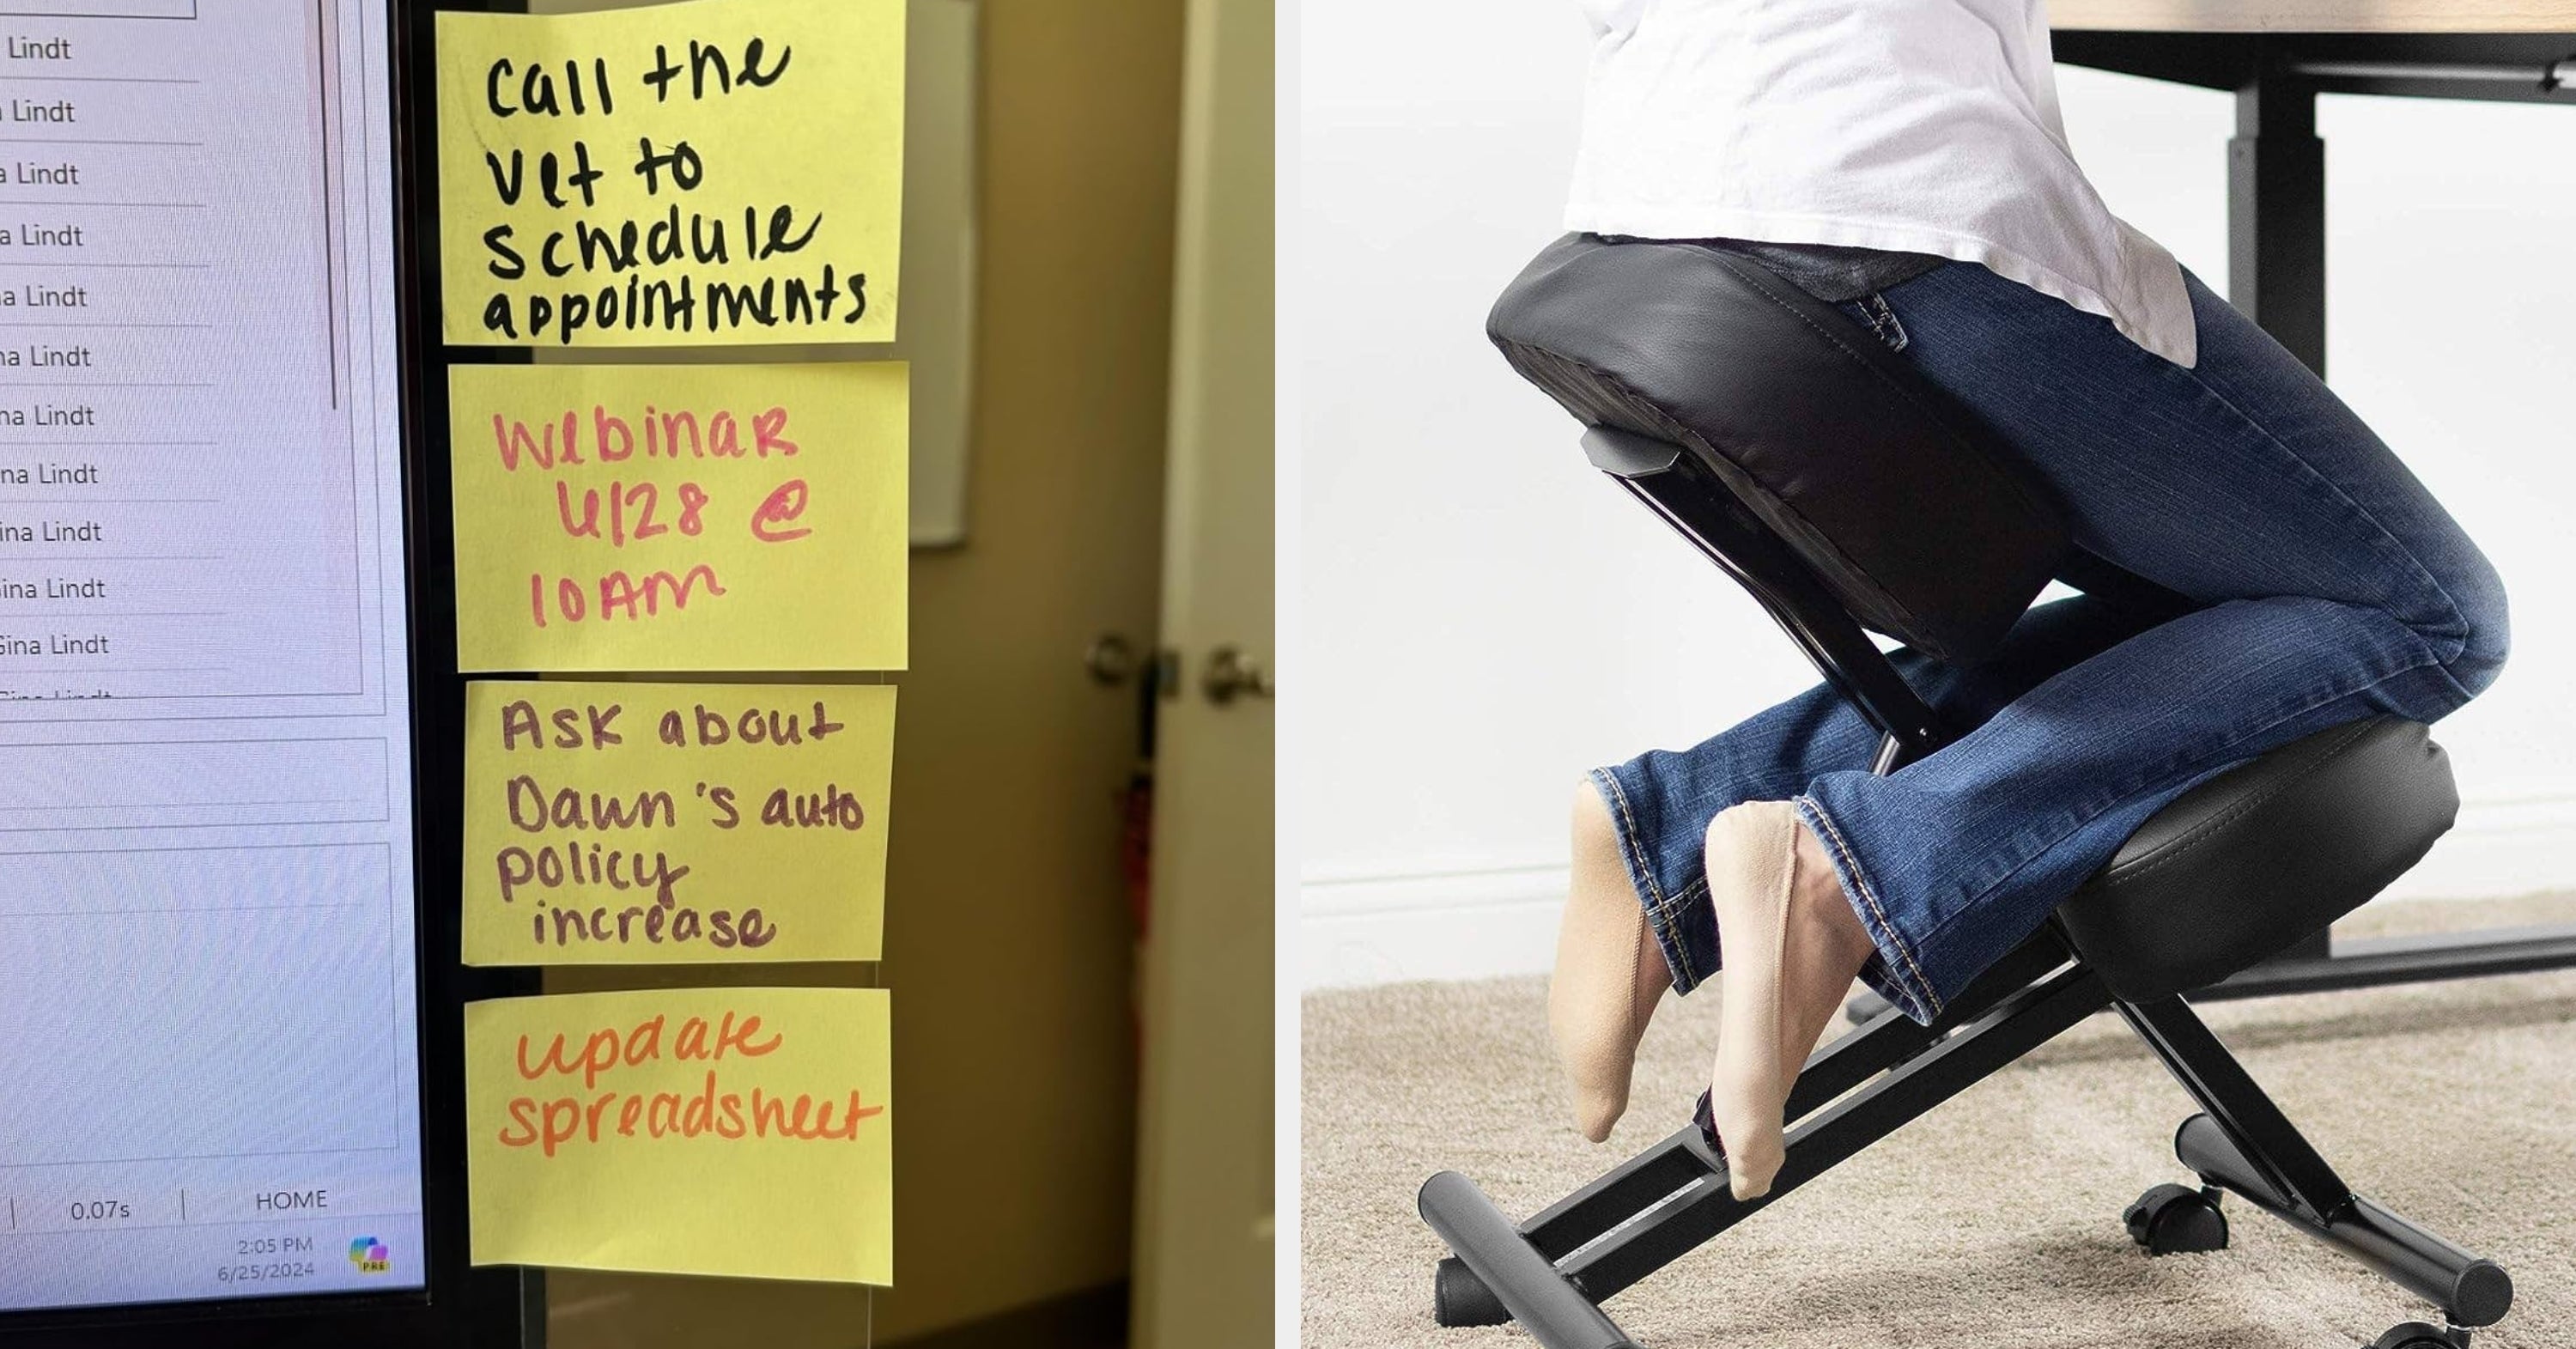 Lindt
Lindt
a Lindt
a Lindt
a Lindt
na Lindt
na Lindt
na Lindt
ina Lindt
ina Lindt
Gina Lindt
Gina Lindt
0.07s
HOME
2:05 PM
6/25/2024
PRE
call the
vet to
schedule
appointments
Webinar
6/28 @
10 AM
Ask about
Dawn's auto
policy
increase
update
spreadsheet